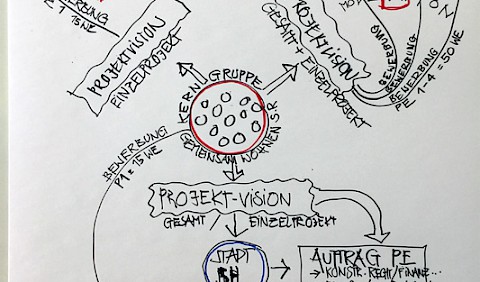 BEWERBUNG
15 WE
PROJEKTVISION
EINZELPROJEKT
PROJEKTVISION
GESAMT + EINZELPROJEKT
BEWERBUNG
BEWERBUNG
BEWERBUNG
PE 1-4 = 50 WE
KERN GRUPPE
GEMEINSAM WOHNEN SR
BEWERBUNG
P1 = 15 WE
PROJEKT-VISION
GESAMT / EINZELPROJEKT
STADT
AUFTRAG PE
→ KONSTR. RECHT/FINANZ...